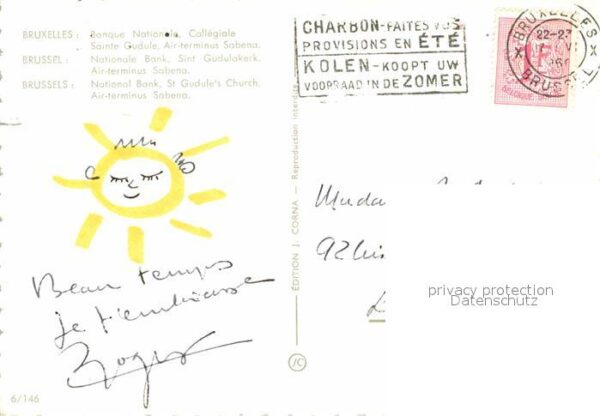 BRUXELLES : Banque Nationale, Collégiale
Sainte Gudule, Air-terminus Sabena.
BRUSSEL : Nationale Bank, Sint Gudulakerk,
Air-terminus Sabena.
BRUSSELS : National Bank, St Gudule's Church,
Air-terminus Sabena.
CHARBON-FAITES VOS
PROVISIONS EN ÉTÉ
KOLEN-KOOPT UW
VOORRAAD IN DE ZOMER
BRUXELLES
22-23
BRUSSEL
Beau temps
Je t'embrasse
Roger
6/146
ÉDITION J. CORNA — Reproduction
JC
92bis
privacy protection
Datenschutz